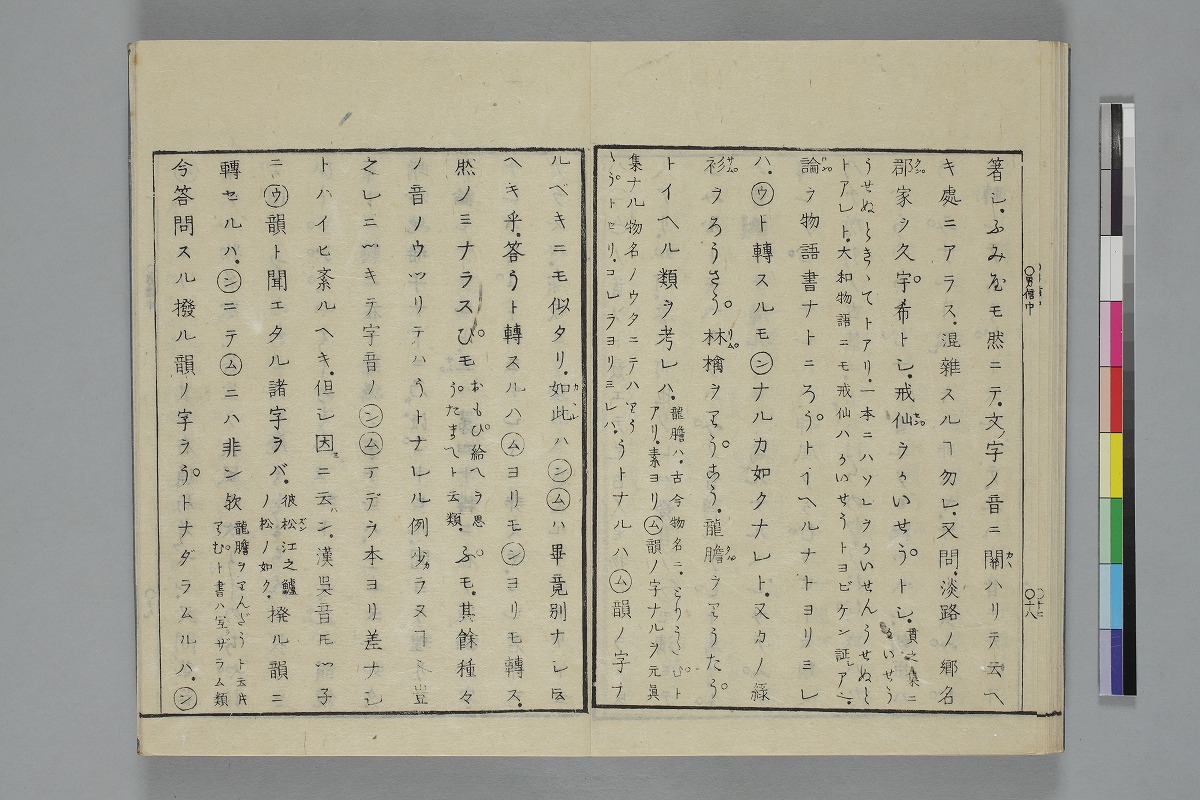 著シ、ふみ色モ然ニテ、文字ノ音ニ關ハリテ云ヘ
キ處ニアラス、混雜スルヿ勿レ、又問、淡路ノ郷名
郡家ヲ久宇希トシ、戒仙ヲかいせうトシ、貫之集ニかいせう
うせぬときゝてトアリ、一本ニハソレヲかいせんうせぬと
トアレト、大和物語ニモ戒仙ハかいせうトヨビケン証アヘシ、
論ヲ物語書ナトニろうトイヘルナトヨリミレ
ハ、ウト轉スルモンナルカ如クナレト、又カノ緑
衫ヲろうさう、林檎ヲりうこう、龍膽ヲりうたう
トイヘル類ヲ考レハ、龍膽ハ、古今物名ニ、とりうちむトアリ、素ヨリム韻ノ字ナルヲ元眞
集ナル物名ノウタニテハりうたうトセリ、コレラヨリミレハ、うトナルハム韻ノ字ナ
ルベキニモ似タリ、如此ハンムハ畢竟別ナシ云
ヘキ乎、答うト轉スルハムヨリモンヨリモ轉ス、
然ノミナラスびモおもひ給へヲ思うたまへト云類、ふモ、其餘種々
ノ音ノウツリテハうトナレル例少ラヌヿ豈
之レニツキテ字音ノンムテデヲ本ヨリ差ナシ
トハイヒ紊ルヘキ、但シ因ニ云ン、漢呉音トモツ子
ニウ韻ト聞エタル諸字ラバ、彼松江之鱸ノ松ノ如ク、撥ル韻ニ
轉セルハ、ンニテムニハ非ン欤龍膽ヲりんだうト云片てむト書ハ、宜ザラム類
今答問スル撥ル韻ノ字ヲうトナダラムルハ、ン